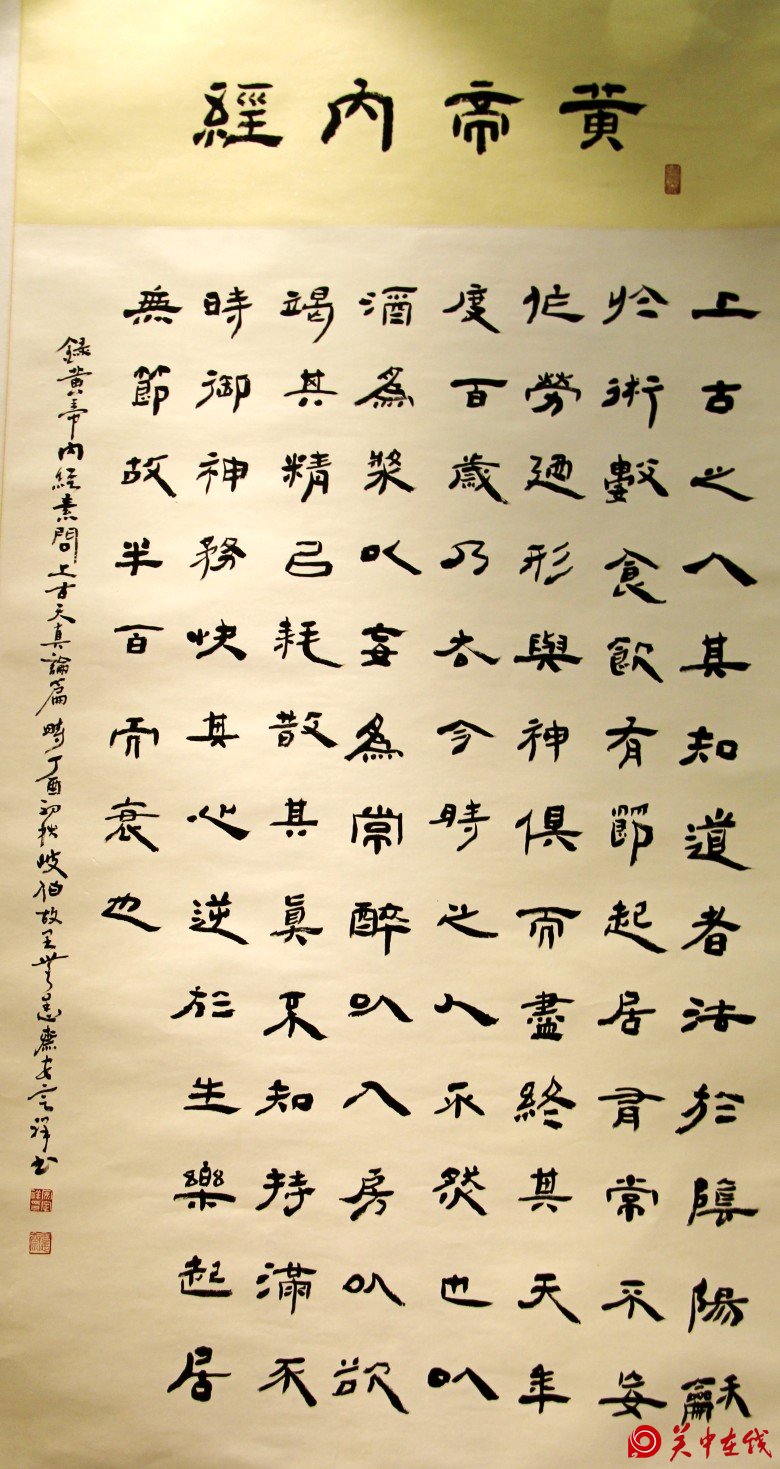 黄帝内經
上古之人其知道者法於陰陽龢
於術數食飲有節起居有常不妄
作勞迺形與神俱而盡終其天年
度百歲乃去今時之人不然也以
酒為漿以妄為常醉以入房以欲
竭其精已耗散其真不知持滿不
時御神務快其心逆於生樂起居
無節故半百而衰也
録黄帝内經素問上古天真論篇時丁酉初秋岐伯故里齋祥書
关中在线